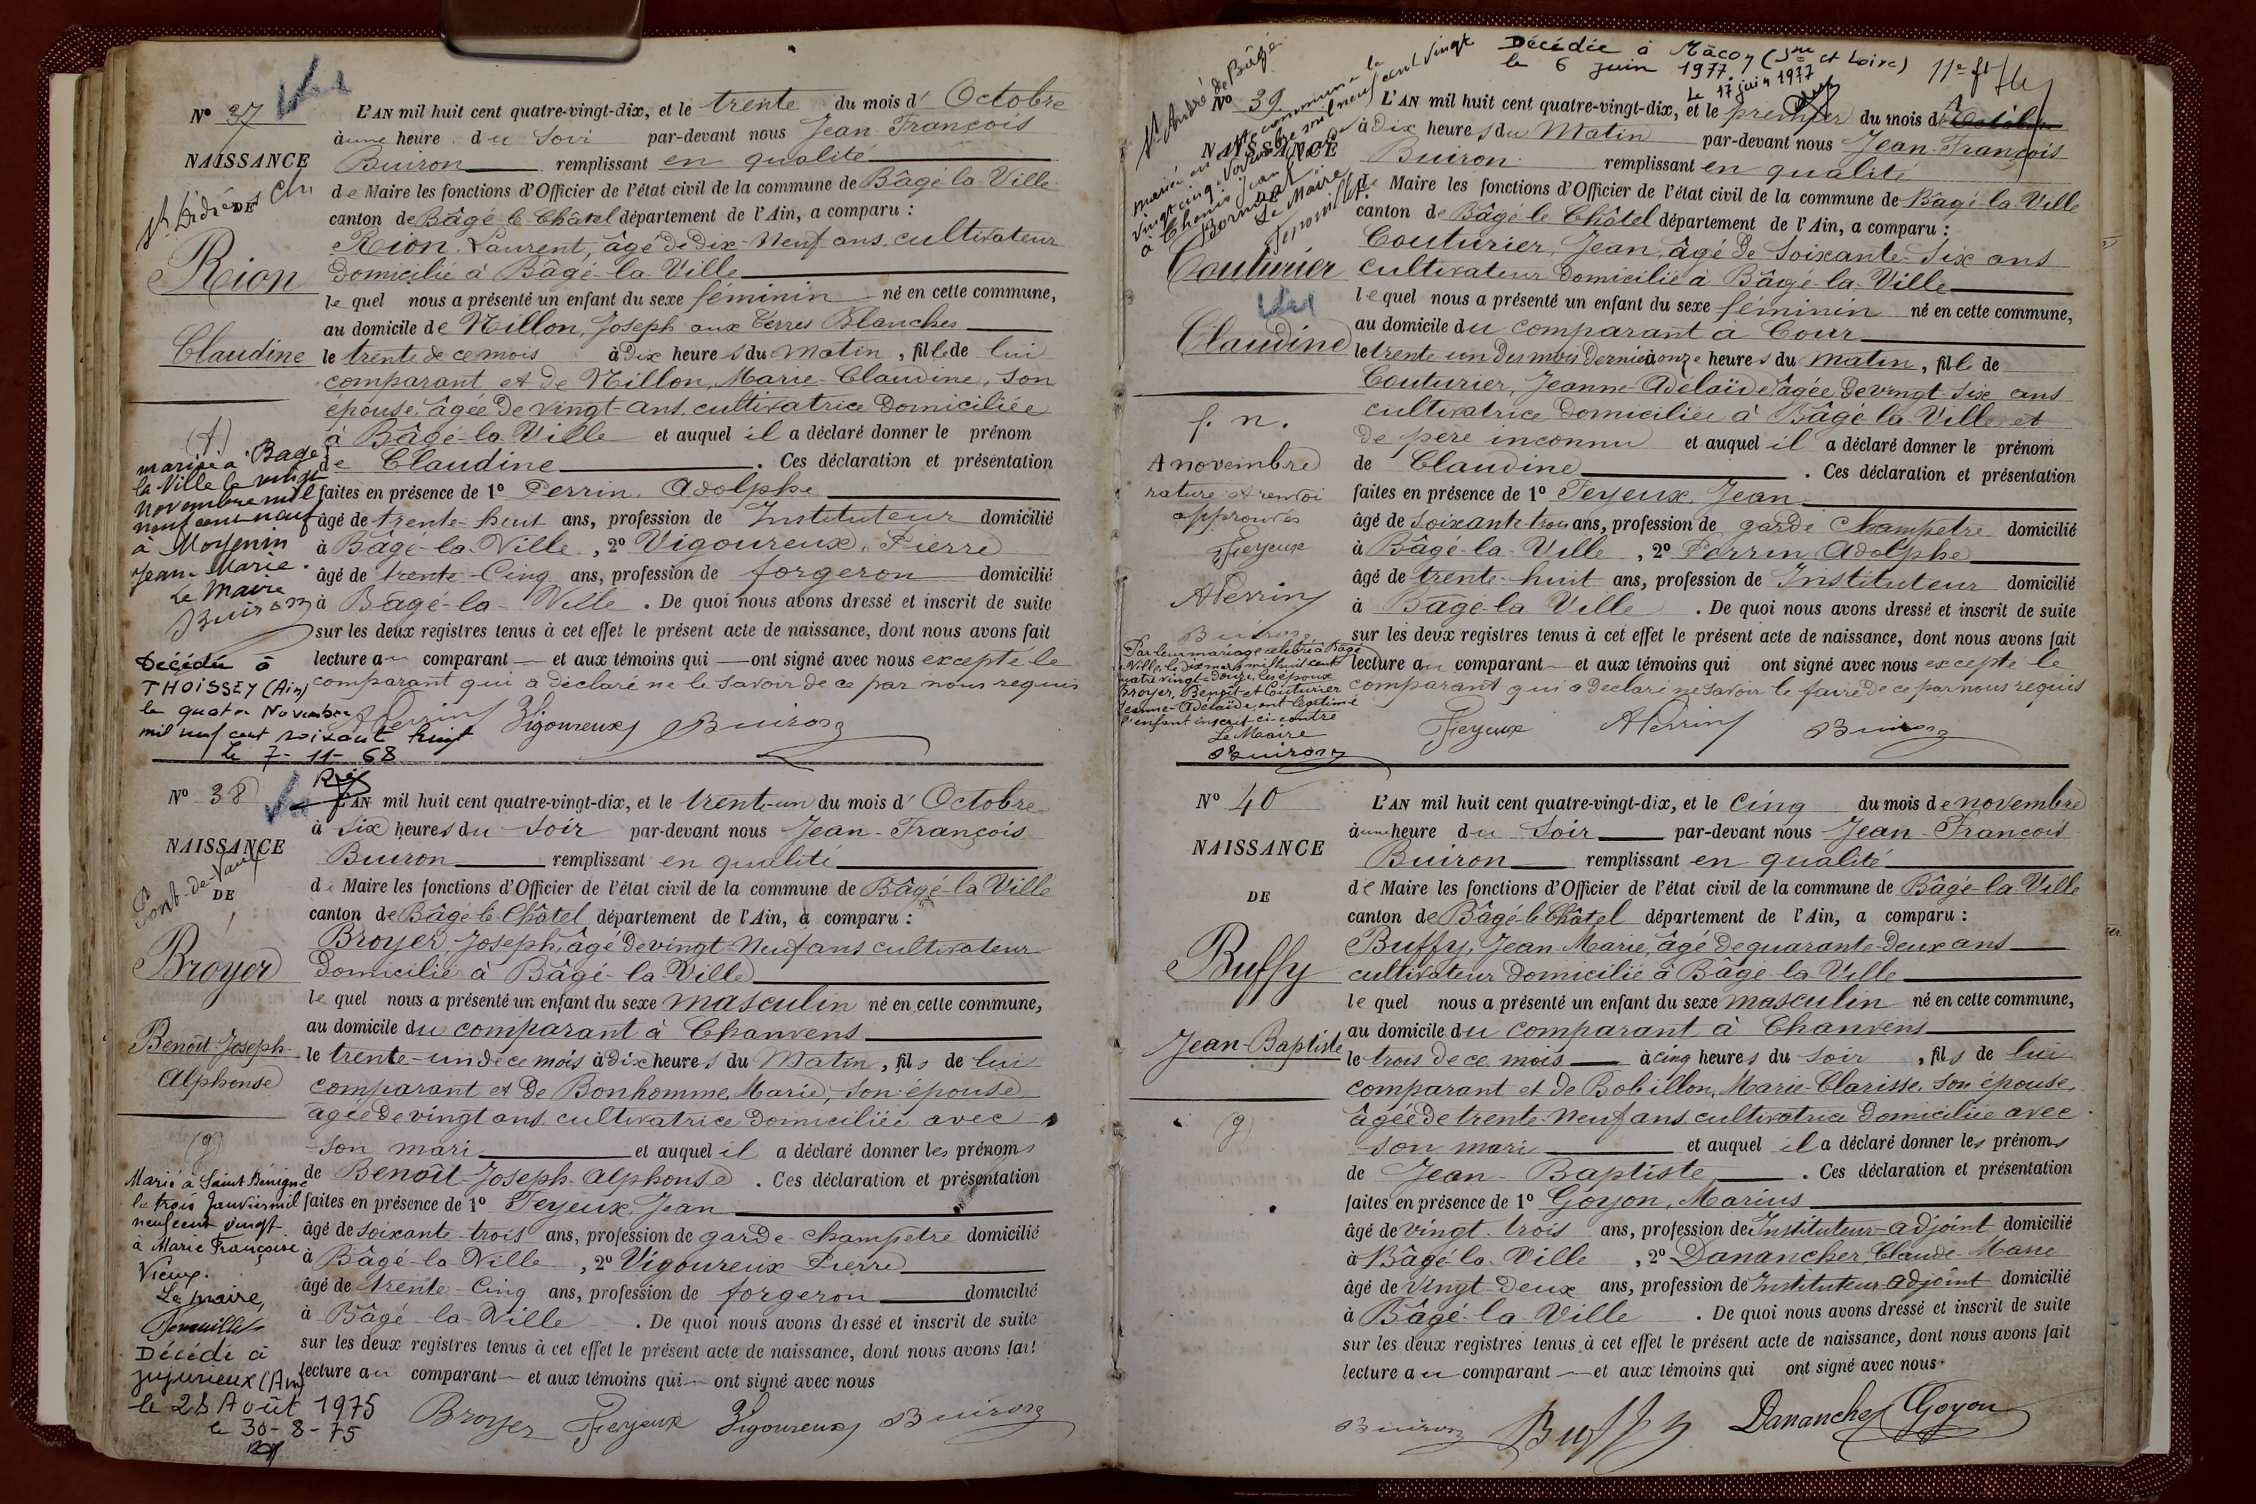 Nº 37
NAISSANCE
DE
Rion
Claudine
L'AN mil huit cent quatre-vingt-dix, et le trente du mois d' Octobre
à une heure du Soir par-devant nous Jean-François
Buiron remplissant en qualité
de Maire les fonctions d'Officier de l'état civil de la commune de Bâgé-la-Ville
canton de Bâgé-le-Châtel département de l'Ain, a comparu :
Rion, Laurent, âgé de Dix-Neuf ans, cultivateur
Domicilié à Bâgé-la-Ville
le quel nous a présenté un enfant du sexe féminin né en cette commune,
au domicile de Nillon, Joseph aux Terres Blanches
le trente de ce mois à Dix heures du Matin, fille de lui
comparant et de Nillon, Marie-Claudine, son
épouse, âgée de vingt-ans, cultivatrice Domiciliée
à Bâgé-la-Ville et auquel il a déclaré donner le prénom
de Claudine . Ces déclaration et présentation
faites en présence de 1º Perrin, Adolphe
âgé de trente-huit ans, profession de Instituteur domicilié
à Bâgé-la-Ville, 2º Vigoureux, Pierre
âgé de trente-Cinq ans, profession de forgeron domicilié
à Bâgé-la-Ville. De quoi nous avons dressé et inscrit de suite
sur les deux registres tenus à cet effet le présent acte de naissance, dont nous avons fait
lecture au comparant et aux témoins qui ont signé avec nous excepté le
comparant qui a déclaré ne le savoir de ce par nous requis
APerrin Vigoureux Buiron
mariée à Bâgé
la Ville le vingt
Novembre mil
neuf cent neuf
à Moyenin
Jean-Marie.
Le Maire
Buiron
Décédée à
THOISSEY (Ain)
le quatre Novembre
mil neuf cent soixante huit
Le 7-11-68
Nº 38
NAISSANCE
Pont-de-Vaux
DE
Broyer
Benoît-Joseph-
Alphonse
L'AN mil huit cent quatre-vingt-dix, et le trent-un du mois d' Octobre
à Six heures du Soir par-devant nous Jean-François
Buiron remplissant en qualité
de Maire les fonctions d'Officier de l'état civil de la commune de Bâgé-la-Ville
canton de Bâgé-le-Châtel département de l'Ain, a comparu :
Broyer, Joseph, âgé de vingt-Neuf ans cultivateur
Domicilié à Bâgé-la-Ville
le quel nous a présenté un enfant du sexe masculin né en cette commune,
au domicile du comparant à Chanvens
le trente-un de ce mois à Dix heures du Matin, fils de lui
comparant et de Bonhomme, Marie, son épouse
âgée de vingt ans cultivatrice Domiciliée avec
son mari et auquel il a déclaré donner les prénoms
de Benoît-Joseph-Alphonse. Ces déclaration et présentation
faites en présence de 1º Feyeux, Jean
âgé de soixante-trois ans, profession de garde-champêtre domicilié
à Bâgé-la-Ville, 2º Vigoureux Pierre
âgé de trente-Cinq ans, profession de forgeron domicilié
à Bâgé-la-Ville. De quoi nous avons dressé et inscrit de suite
sur les deux registres tenus à cet effet le présent acte de naissance, dont nous avons fait
lecture au comparant et aux témoins qui ont signé avec nous
Broyer Feyeux Vigoureux Buiron
Marié à Saint Bénigne
le trois Janvier mil
neuf cent vingt
à Marie Françoise
Vieux.
Le maire,
Décédé à
Jujurieux (Ain)
le 28 Août 1975
le 30-8-75
Décédée à Mâcon (Sne et Loire)
le 6 juin 1977.
Le 17 juin 1977
11e ft
St André de Bâgé
Nº 39
NAISSANCE
Couturier
Claudine
L'AN mil huit cent quatre-vingt-dix, et le premier du mois d'Octobre
à Dix heures du Matin par-devant nous Jean-François
Buiron remplissant en qualité
de Maire les fonctions d'Officier de l'état civil de la commune de Bâgé-la-Ville
canton de Bâgé-le-Châtel département de l'Ain, a comparu :
Couturier, Jean, âgé de Soixante-Six ans
cultivateur Domicilié à Bâgé-la-Ville
le quel nous a présenté un enfant du sexe féminin né en cette commune,
au domicile du comparant a Cour
le trente un du mois Dernier à onze heures du Matin, fille de
Couturier, Jeanne-Adelaïde, âgée de vingt-Six ans
cultivatrice Domiciliée à Bâgé-la-Ville et
de père inconnu et auquel il a déclaré donner le prénom
de Claudine . Ces déclaration et présentation
faites en présence de 1º Feyeux, Jean
âgé de Soixante-trois ans, profession de garde Champêtre domicilié
à Bâgé-la-Ville, 2º Perrin Adolphe
âgé de trente-huit ans, profession de Instituteur domicilié
à Bâgé-la-Ville. De quoi nous avons dressé et inscrit de suite
sur les deux registres tenus à cet effet le présent acte de naissance, dont nous avons fait
lecture au comparant et aux témoins qui ont signé avec nous excepté le
comparant qui a déclaré ne savoir le faire de ce par nous requis
Feyeux APerrin Buiron
f. n.
A novembre
rature et renvoi
approuvés
Feyeux
APerrin
Buiron
Par leur mariage célébré à Bâgé
la Ville, le dix mars mil huit cent
quatre vingt-douze, les époux
Broyer, Benoît et Couturier
Jeanne-Adelaïde, ont légitimé
l'enfant inscrit ci-contre
Le Maire
Buiron
Nº 40
NAISSANCE
DE
Buffy
Jean-Baptiste
L'AN mil huit cent quatre-vingt-dix, et le Cinq du mois de novembre
à une heure du Soir par-devant nous Jean-François
Buiron remplissant en qualité
de Maire les fonctions d'Officier de l'état civil de la commune de Bâgé-la-Ville
canton de Bâgé-le-Châtel département de l'Ain, a comparu :
Buffy, Jean-Marie, âgé de quarante-Deux ans
cultivateur Domicilié à Bâgé-la-Ville
le quel nous a présenté un enfant du sexe masculin né en cette commune,
au domicile du comparant à Chanvens
le trois de ce mois à cinq heures du Soir, fils de lui
comparant et de Bobillon, Marie-Clarisse, Son épouse,
âgée de trente-Neuf ans, cultivatrice Domiciliée avec
son mari et auquel il a déclaré donner les prénoms
de Jean-Baptiste . Ces déclaration et présentation
faites en présence de 1º Goyon, Marius
âgé de vingt-trois ans, profession de Instituteur-adjoint domicilié
à Bâgé-la-Ville, 2º Danancher, Claude-Marie
âgé de Vingt-Deux ans, profession de Instituteur-adjoint domicilié
à Bâgé-la-Ville. De quoi nous avons dressé et inscrit de suite
sur les deux registres tenus à cet effet le présent acte de naissance, dont nous avons fait
lecture au comparant et aux témoins qui ont signé avec nous.
Buiron Buffy Danancher Goyon